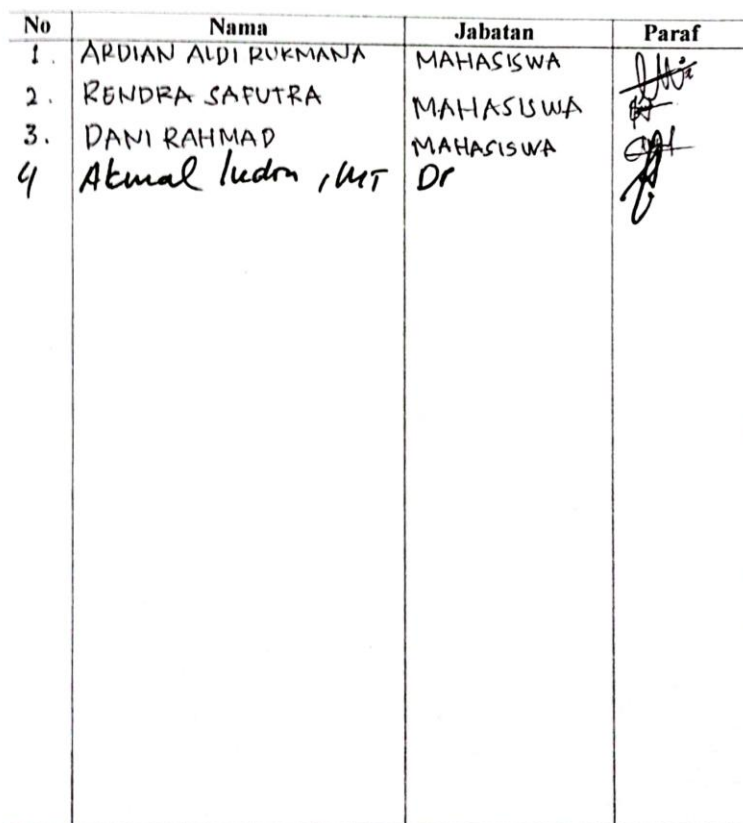 No Nama Jabatan Paraf
1. ARDIAN ALDI RUKMANA MAHASISWA
2. RENDRA SAFUTRA MAHASISWA
3. DANI RAHMAD MAHASISWA
4 Akmal Indra, MT Dr